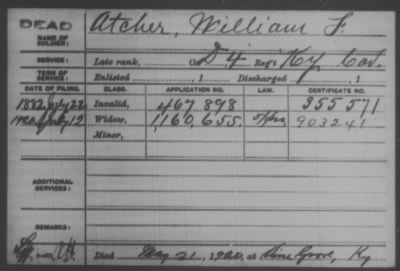 DEAD
Atcher, William F.
NAME OF SOLDIER:
SERVICE: Late rank, Co. D 4 Reg't Ky Cav.
TERM OF SERVICE: Enlisted , 1 Discharged , 1
DATE OF FILING. CLASS. APPLICATION NO. LAW. CERTIFICATE NO.
1882 July 22 Invalid, 467,898 355 571
1920 July 12 Widow, 1,160,655 903241
Minor,
ADDITIONAL SERVICES:
REMARKS:
Died May 21, 1920, at Vine Grove, Ky